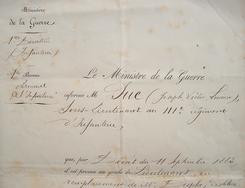 Ministère
de la Guerre
1re Direction
(Infanterie)
1er Bureau
Personnel
de l'Infanterie
Le Ministre de la Guerre
informe M. Suc (Joseph Victor
Sous-Lieutenant au 111e régiment
d'Infanterie,
que, par Décret du 11 Septembre
il est promu au grade de Lieutenant, en
remplacement de M.